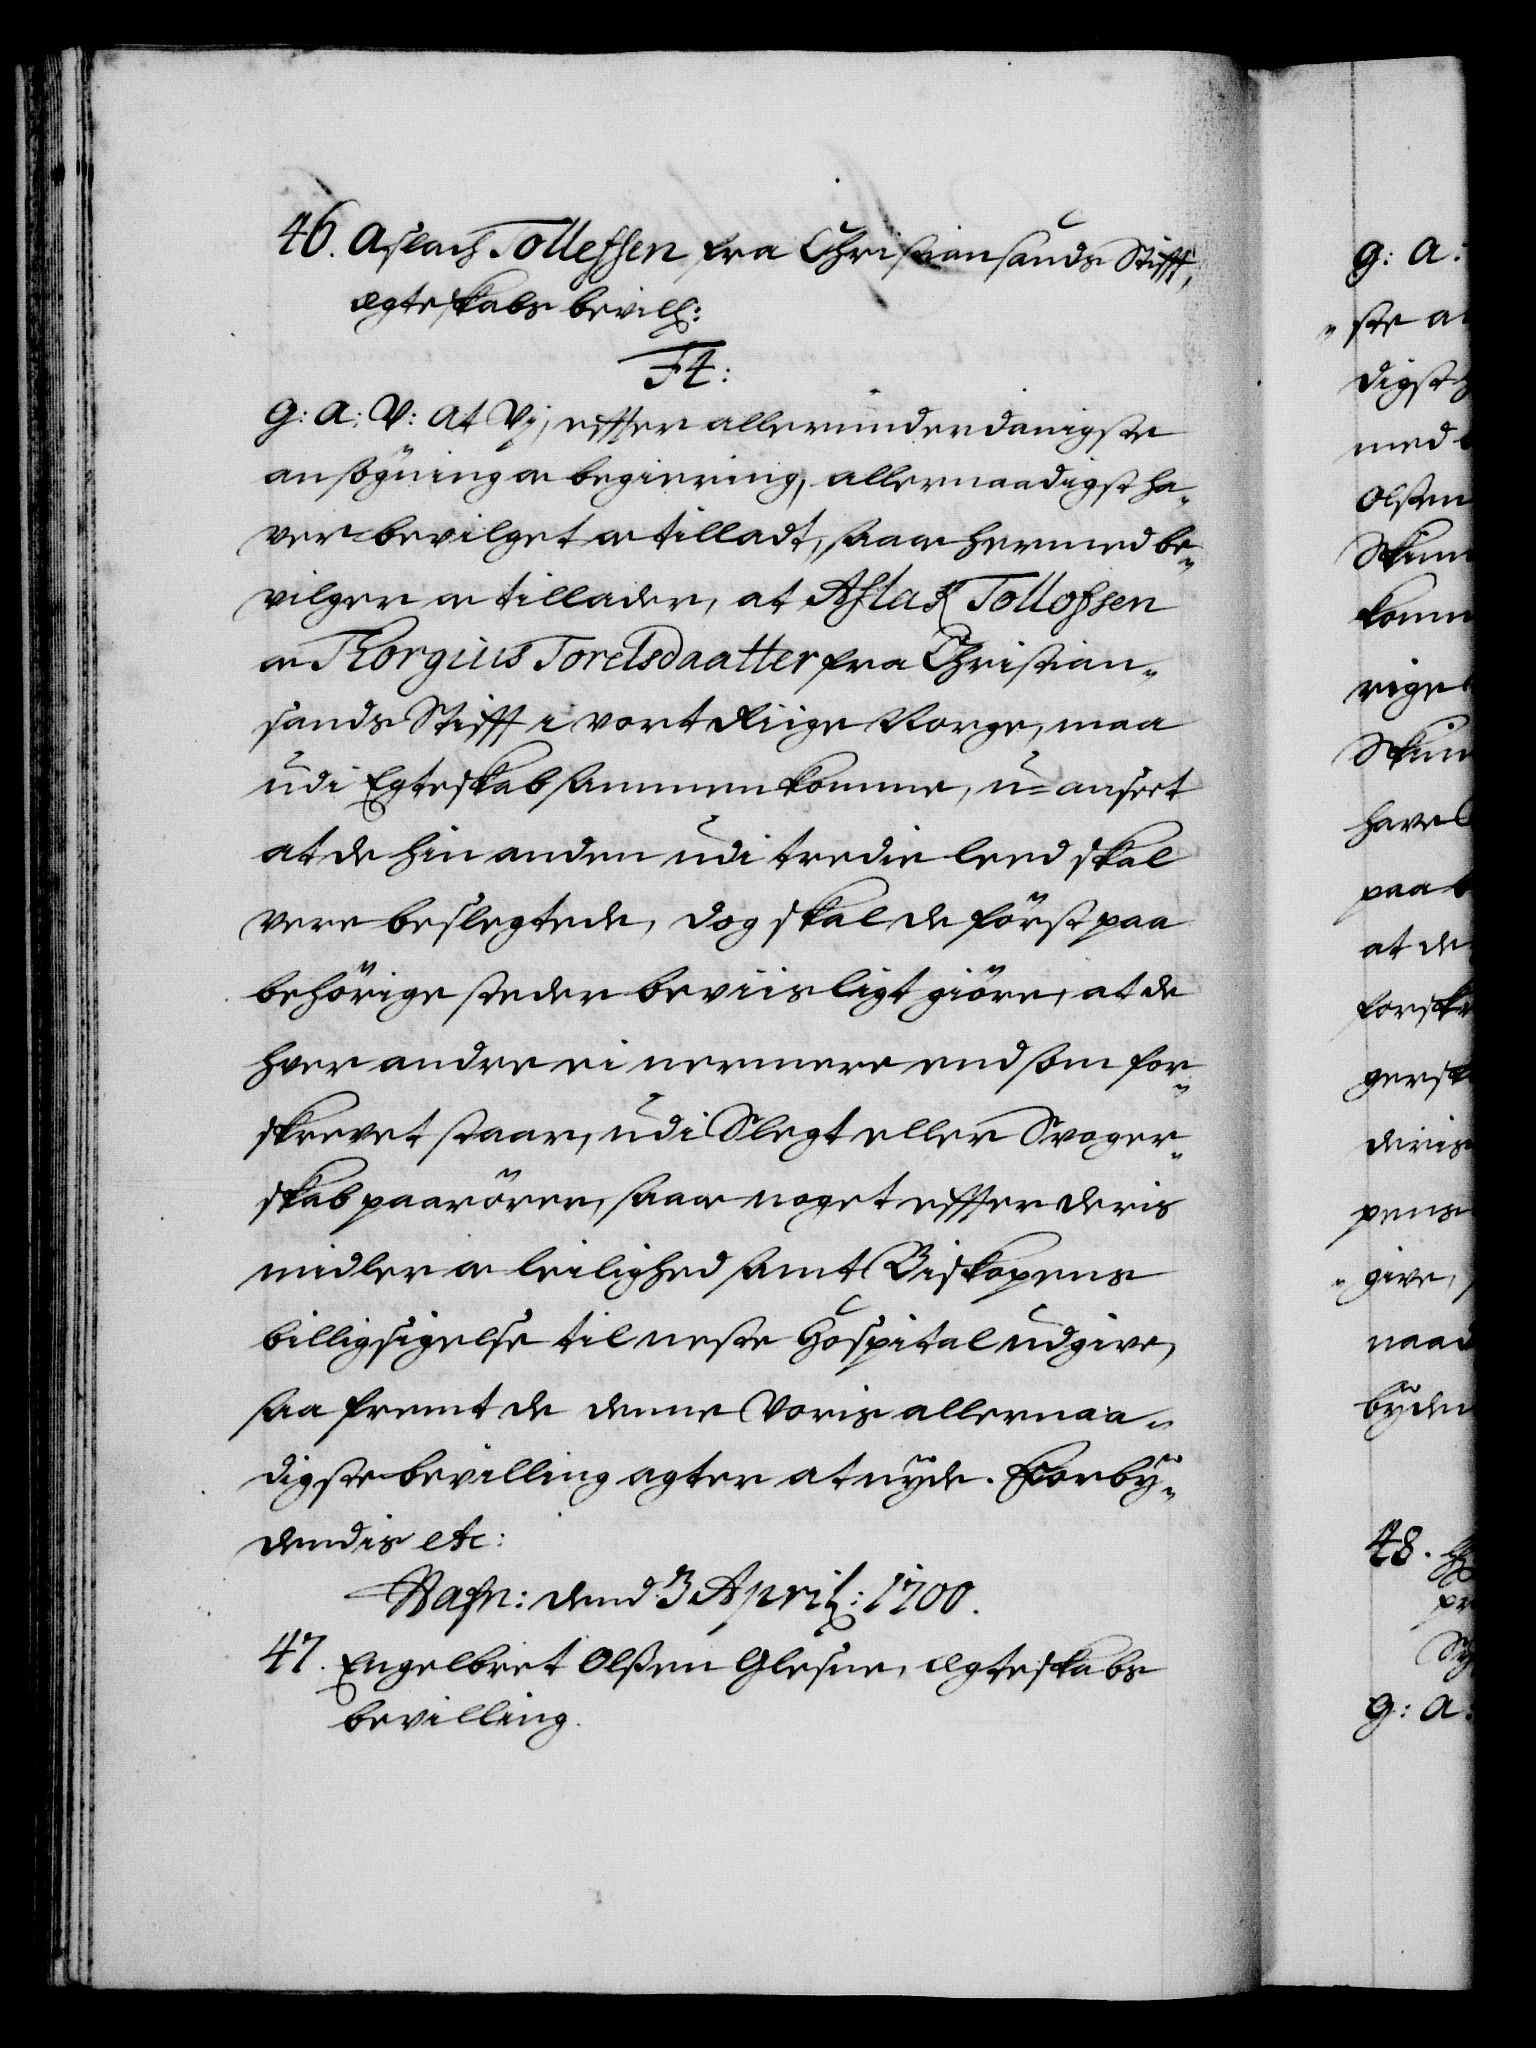 46. Aslach Tollefsen fra Christiansands Stifft,
ægteskabs bevill:
F4:
G: A: V: At Vj, effter allerunderdanigste
ansøgning oc begiering, allernaadigst ha-
ver bevilget oc tilladt, saa oc hermed be-
vilger oc tillader, at Aslak Tollofsen
oc Thorgius Torelsdaatter fra Christian-
sands Stifft i vort Riige Norge, maa
udi Egteskab sammenkomme, u-anseet
at de hin anden udi tredie leed skal
vere beslegtede, dog skal de først paa
behørige steder beviisligt giøre, at de
hver andre ei nermere end som for-
skrevet staar, udi Slegt eller Svoger-
skab paarører, saa oc noget effter deris
midler oc leilighed samt Biskopens
billigsigelse til neste Hospital udgive,
saa fremt de denne Voris allernaa-
digste bevilling agter at nyde. Forby-
dendis etc:
Hafn: dend 3 April: 1700.
47. Engelbret Olssen Glesne, ægteskabs
bevilling.
G: A:
ste a
digst
med
Olssen
have
paa b
at de
forskr
gersk
deris
pens
give,
naad
byden
48.
G: A: